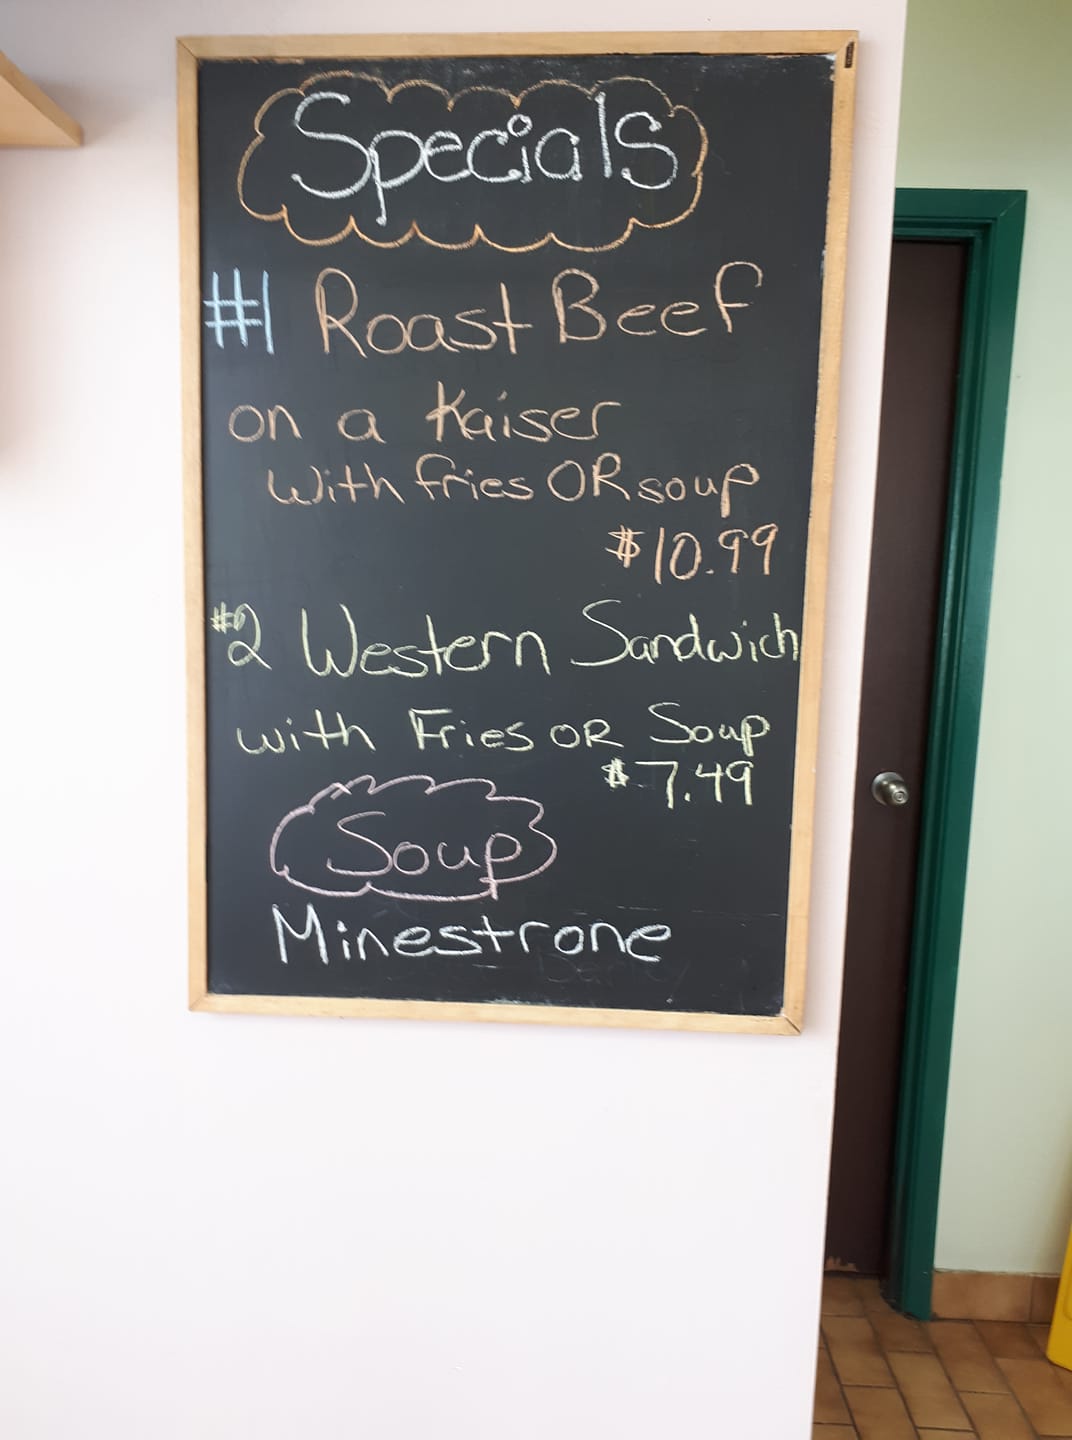 Specials
#1 Roast Beef
on a Kaiser
With fries OR soup
$10.99
#2 Western Sandwich
with Fries OR Soup
$7.49
Soup
Minestrone